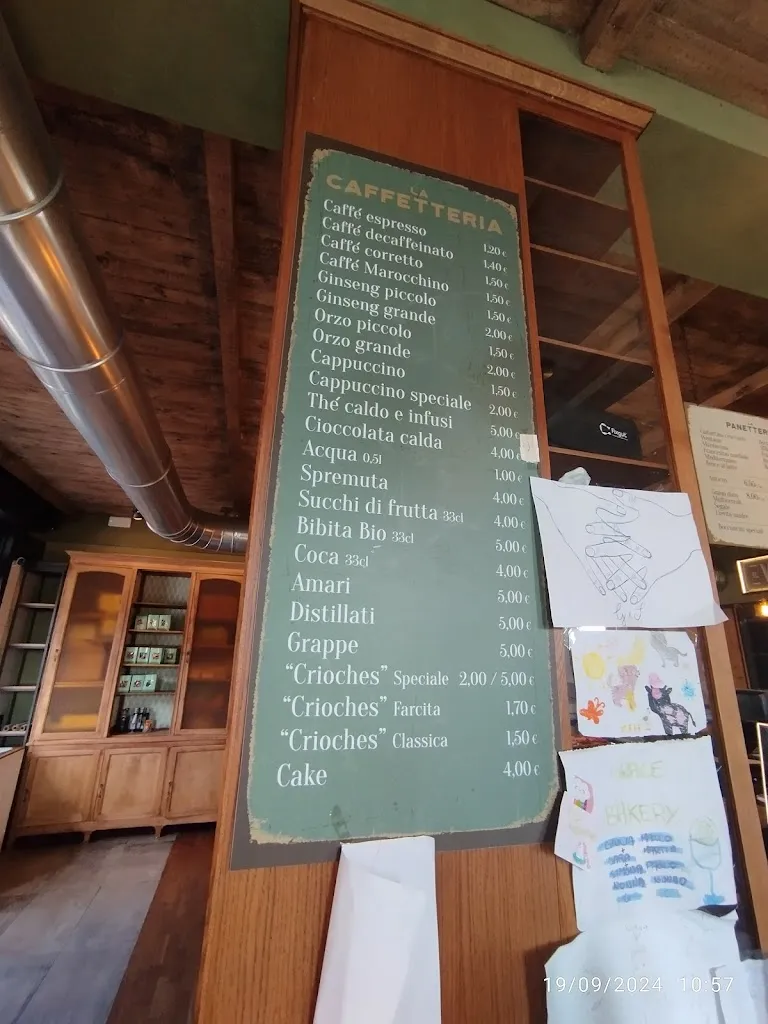 LA
CAFFETTERIA
Caffé espresso 1,20 €
Caffé decaffeinato 1,40 €
Caffé corretto 1,50 €
Caffé Marocchino 1,50 €
Ginseng piccolo 1,50 €
Ginseng grande 2,00 €
Orzo piccolo 1,50 €
Orzo grande 2,00 €
Cappuccino 1,50 €
Cappuccino speciale 2,00 €
Thé caldo e infusi 5,00 €
Cioccolata calda 4,00 €
Acqua 0,5l 1,00 €
Spremuta 4,00 €
Succhi di frutta 33cl 4,00 €
Bibita Bio 33cl 5,00 €
Coca 33cl 4,00 €
Amari 5,00 €
Distillati 5,00 €
Grappe 5,00 €
“Crioches” Speciale 2,00 / 5,00 €
“Crioches” Farcita 1,70 €
“Crioches” Classica 1,50 €
Cake 4,00 €
BAKERY
19/09/2024 10:57